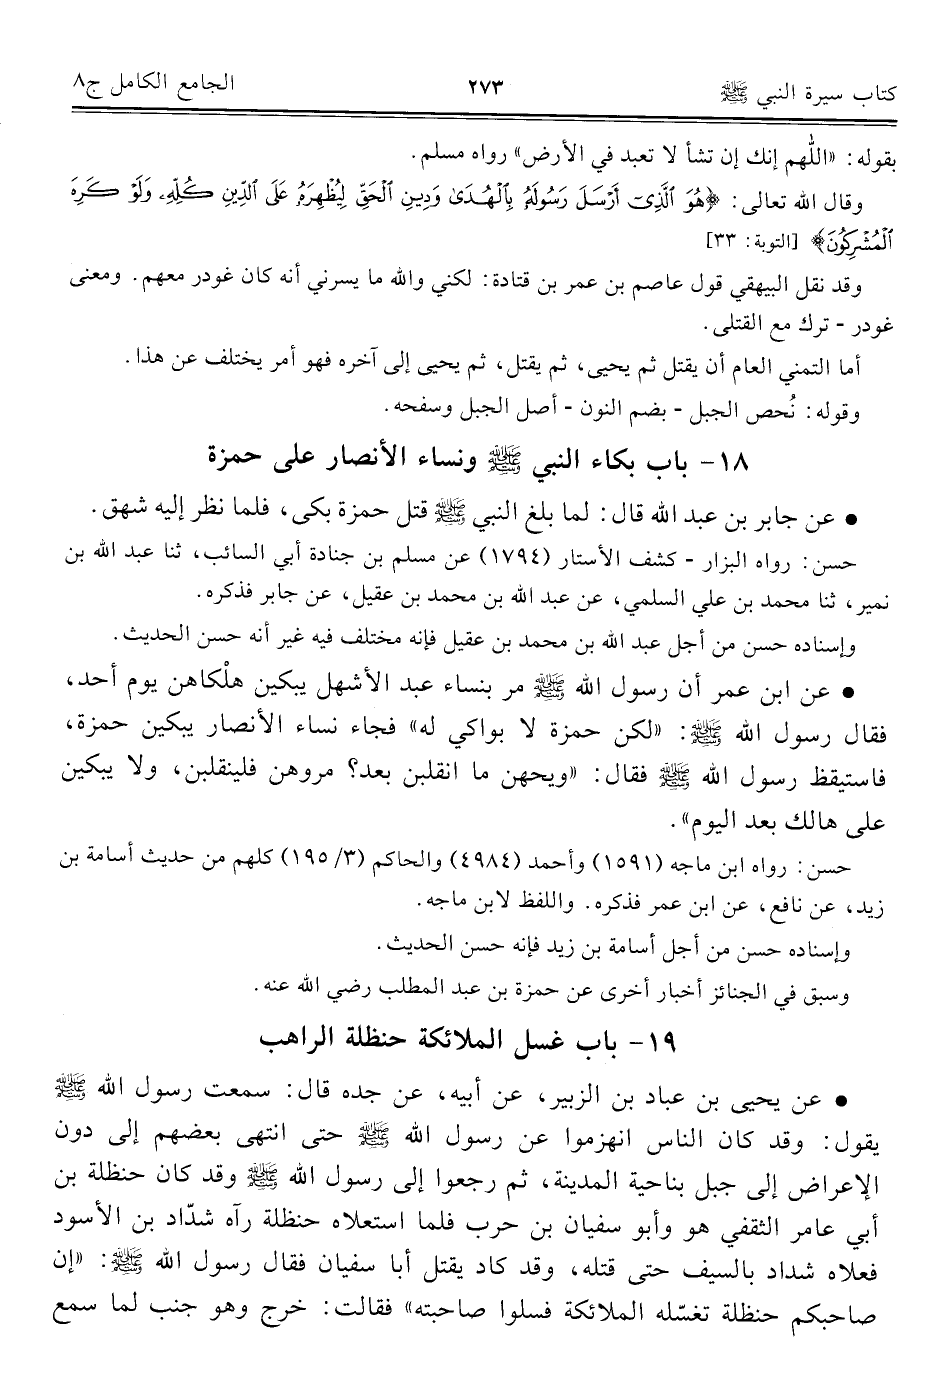 كتاب سيرة النبي ﷺ ٢٧٣ الجامع الكامل ج٨
بقوله: «اللّٰهم إنك إن تشأ لا تعبد في الأرض» رواه مسلم.
وقال الله تعالى: ﴿هُوَ ٱلَّذِىٓ أَرْسَلَ رَسُولَهُۥ بِٱلْهُدَىٰ وَدِينِ ٱلْحَقِّ لِيُظْهِرَهُۥ عَلَى ٱلدِّينِ كُلِّهِۦ وَلَوْ كَرِهَ
ٱلْمُشْرِكُونَ﴾ [التوبة: ٣٣]
وقد نقل البيهقي قول عاصم بن عمر بن قتادة: لكني والله ما يسرني أنه كان غودر معهم. ومعنى
غودر - ترك مع القتلى.
أما التمني العام أن يقتل ثم يحيى، ثم يقتل، ثم يحيى إلى آخره فهو أمر يختلف عن هذا.
وقوله: نُحص الجبل - بضم النون - أصل الجبل وسفحه.
١٨- باب بكاء النبي ﷺ ونساء الأنصار على حمزة
● عن جابر بن عبد الله قال: لما بلغ النبي ﷺ قتل حمزة بكى، فلما نظر إليه شهق.
حسن: رواه البزار - كشف الأستار (١٧٩٤) عن مسلم بن جنادة أبي السائب، ثنا عبد الله بن
نمير، ثنا محمد بن علي السلمي، عن عبد الله بن محمد بن عقيل، عن جابر فذكره.
وإسناده حسن من أجل عبد الله بن محمد بن عقيل فإنه مختلف فيه غير أنه حسن الحديث.
● عن ابن عمر أن رسول الله ﷺ مر بنساء عبد الأشهل يبكين هلْكاهن يوم أحد،
فقال رسول الله ﷺ: «لكن حمزة لا بواكي له» فجاء نساء الأنصار يبكين حمزة،
فاستيقظ رسول الله ﷺ فقال: «ويحهن ما انقلبن بعد؟ مروهن فلينقلبن، ولا يبكين
على هالك بعد اليوم».
حسن: رواه ابن ماجه (١٥٩١) وأحمد (٤٩٨٤) والحاكم (٣/ ١٩٥) كلهم من حديث أسامة بن
زيد، عن نافع، عن ابن عمر فذكره. واللفظ لابن ماجه.
وإسناده حسن من أجل أسامة بن زيد فإنه حسن الحديث.
وسبق في الجنائز أخبار أخرى عن حمزة بن عبد المطلب رضي الله عنه.
١٩- باب غسل الملائكة حنظلة الراهب
● عن يحيى بن عباد بن الزبير، عن أبيه، عن جده قال: سمعت رسول الله ﷺ
يقول: وقد كان الناس انهزموا عن رسول الله ﷺ حتى انتهى بعضهم إلى دون
الإعراض إلى جبل بناحية المدينة، ثم رجعوا إلى رسول الله ﷺ وقد كان حنظلة بن
أبي عامر الثقفي هو وأبو سفيان بن حرب فلما استعلاه حنظلة رآه شدّاد بن الأسود
فعلاه شداد بالسيف حتى قتله، وقد كاد يقتل أبا سفيان فقال رسول الله ﷺ: «إن
صاحبكم حنظلة تغسّله الملائكة فسلوا صاحبته» فقالت: خرج وهو جنب لما سمع